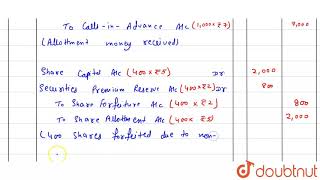 To Calls-in-Advance A/c (1,000×₹7) 7,000
(Allotment money received)
Share Capital A/c (400×₹5) Dr 2,000
Securities Premium Reserve A/c (400×₹2) Dr 800
To Share Forfeiture A/c (400×₹2) 800
To Share Allotment A/c (400×₹5) 2,000
(400 shares forfeited due to non-
doubtnut